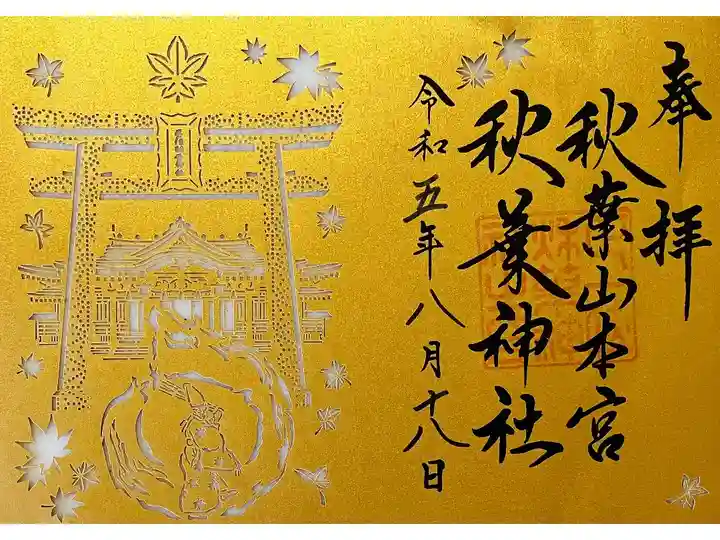 奉拝
秋葉山本宮
秋葉神社
令和五年八月十八日